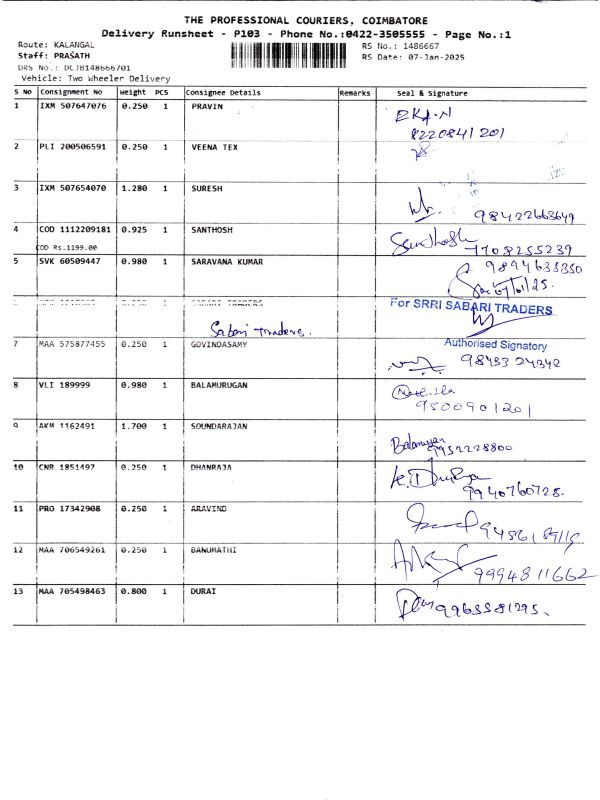 THE PROFESSIONAL COURIERS, COIMBATORE
Delivery Runsheet - P103 - Phone No.:0422-3505555 - Page No.:1
Route: KALANGAL
RS No.: 1486667
Staff: PRASATH
RS Date: 07-Jan-2025
DRS No.: DCJB148666701
Vehicle: Two Wheeler Delivery
S NO Consignment No Weight PCS Consignee Details Remarks Seal & Signature
1 IXM 507647076 0.250 1 PRAVIN
8220841201
2 PLI 200506591 0.250 1 VEENA TEX
3 IXM 507654070 1.280 1 SURESH
98422663649
4 COD 1112209181 0.925 1 SANTHOSH Santhosh
COD Rs.1199.00 7708255239
5 SVK 60509447 0.980 1 SARAVANA KUMAR 9894635350
SABARI TRADERS For SRRI SABARI TRADERS
Sabari Traders.
Authorised Signatory
7 MAA 575877455 0.250 1 GOVINDASAMY
98433 24342
8 VLI 189999 0.980 1 BALAMURUGAN
9500901201
9 AKM 1162491 1.700 1 SOUNDARAJAN
9952228800
10 CNR 1851497 0.250 1 DHANRAJA
9940760728.
11 PRO 17342908 0.250 1 ARAVIND
12 MAA 706549261 0.250 1 BANUMATHI
9994811662
13 MAA 705498463 0.800 1 DURAI